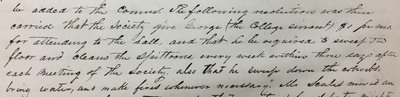 be added to the Council. The following resolution was then
carried that the Society give George (the College servant) $1 per mo
for attending to the hall, and that he be required to sweep the
floor and cleans the spittoons every week within three days after
each meeting of the Society, also that he sweep down the cobwebs
bring water, and make fires whenever necessary. Mr Scales moved an